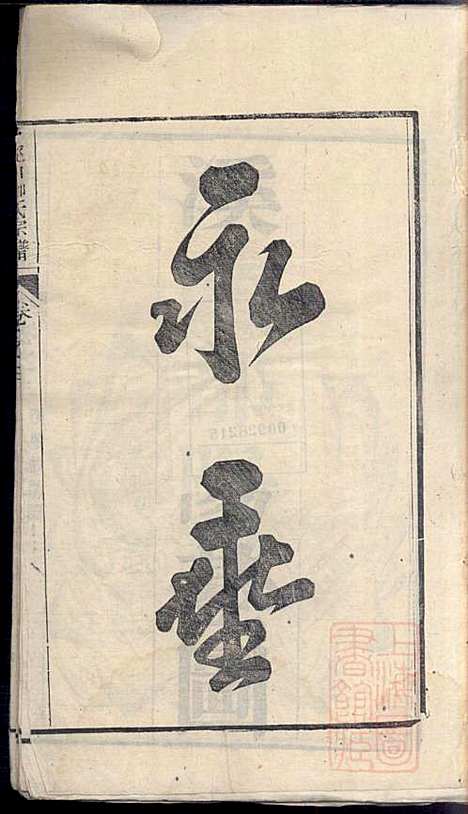 永
垂
氏宗譜
卷
上海圖
書館藏